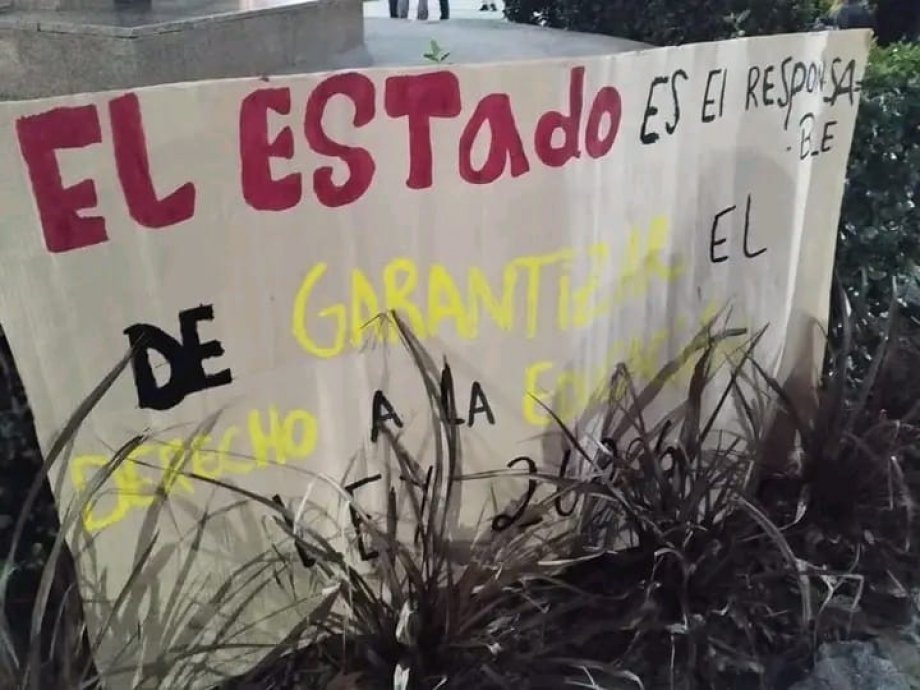 EL ESTAdo ES El RESPONSA-
-BLE
DE GARANTIZAR EL
DERECHO A LA EDUCACIÓN
LEY 26206